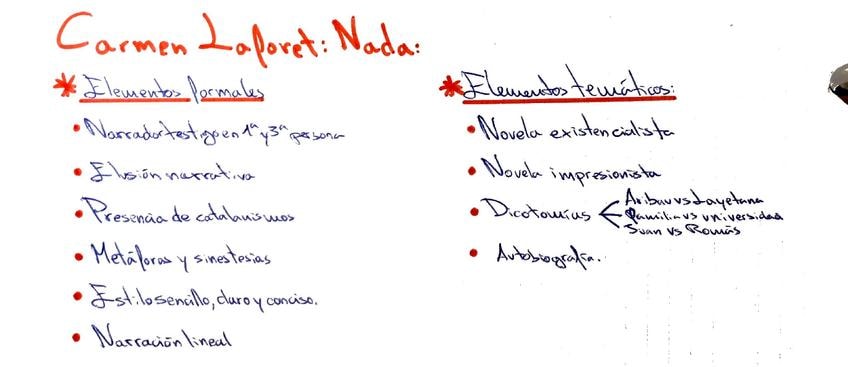 Carmen Laforet: Nada:
* Elementos formales
• Narrador testigo en 1ª y 3ª persona
• Elusión narrativa
• Presencia de catalanismos
• Metáforas y sinestesias
• Estilo sencillo, claro y conciso.
• Narración lineal
* Elementos temáticos:
• Novela existencialista
• Novela impresionista
• Dicotomías
Aribau vs Layetana
familia vs universidad
Juan vs Román
• Autobiografía.